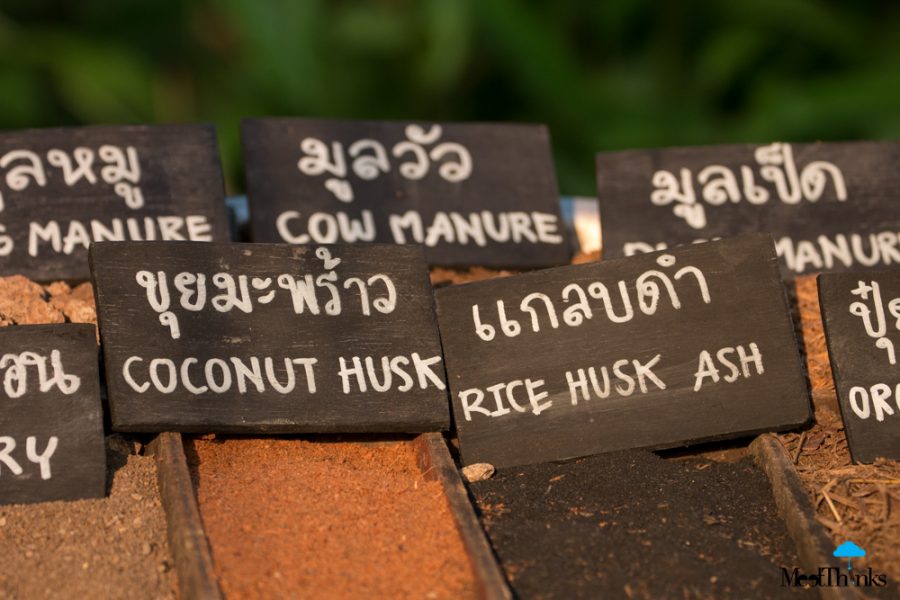 มูลหมู
G MANURE
มูลวัว
COW MANURE
มูลเป็ด
MANURE
ขุยมะพร้าว
COCONUT HUSK
แกลบดำ
RICE HUSK ASH
ปุ๋ย
ORG
RY
MeefThinks